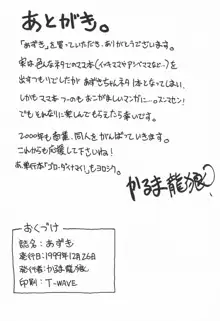 あとがき。
「あずき」を買っていただき、ありがとうございます。
実は色んなネタでのママ本(イケママやデンパママなど…)を
出すつもりでしたが あずきちゃんネタ1本となってしまい、
しかもママ本つーのもおこがましいマンガに…スンマセン!
でもそれなりに楽しんでもらえたら幸いです。
2000年も商業、同人をがんばっていきます。
これからも応援して下さいね!
あ、単行本「ブローダーナマイ」もヨロシク。
かるま龍狼
おくづけ
誌名:あずき
発行日:1999年12月26日
発行者:かるま龍狼
印刷:T-WAVE